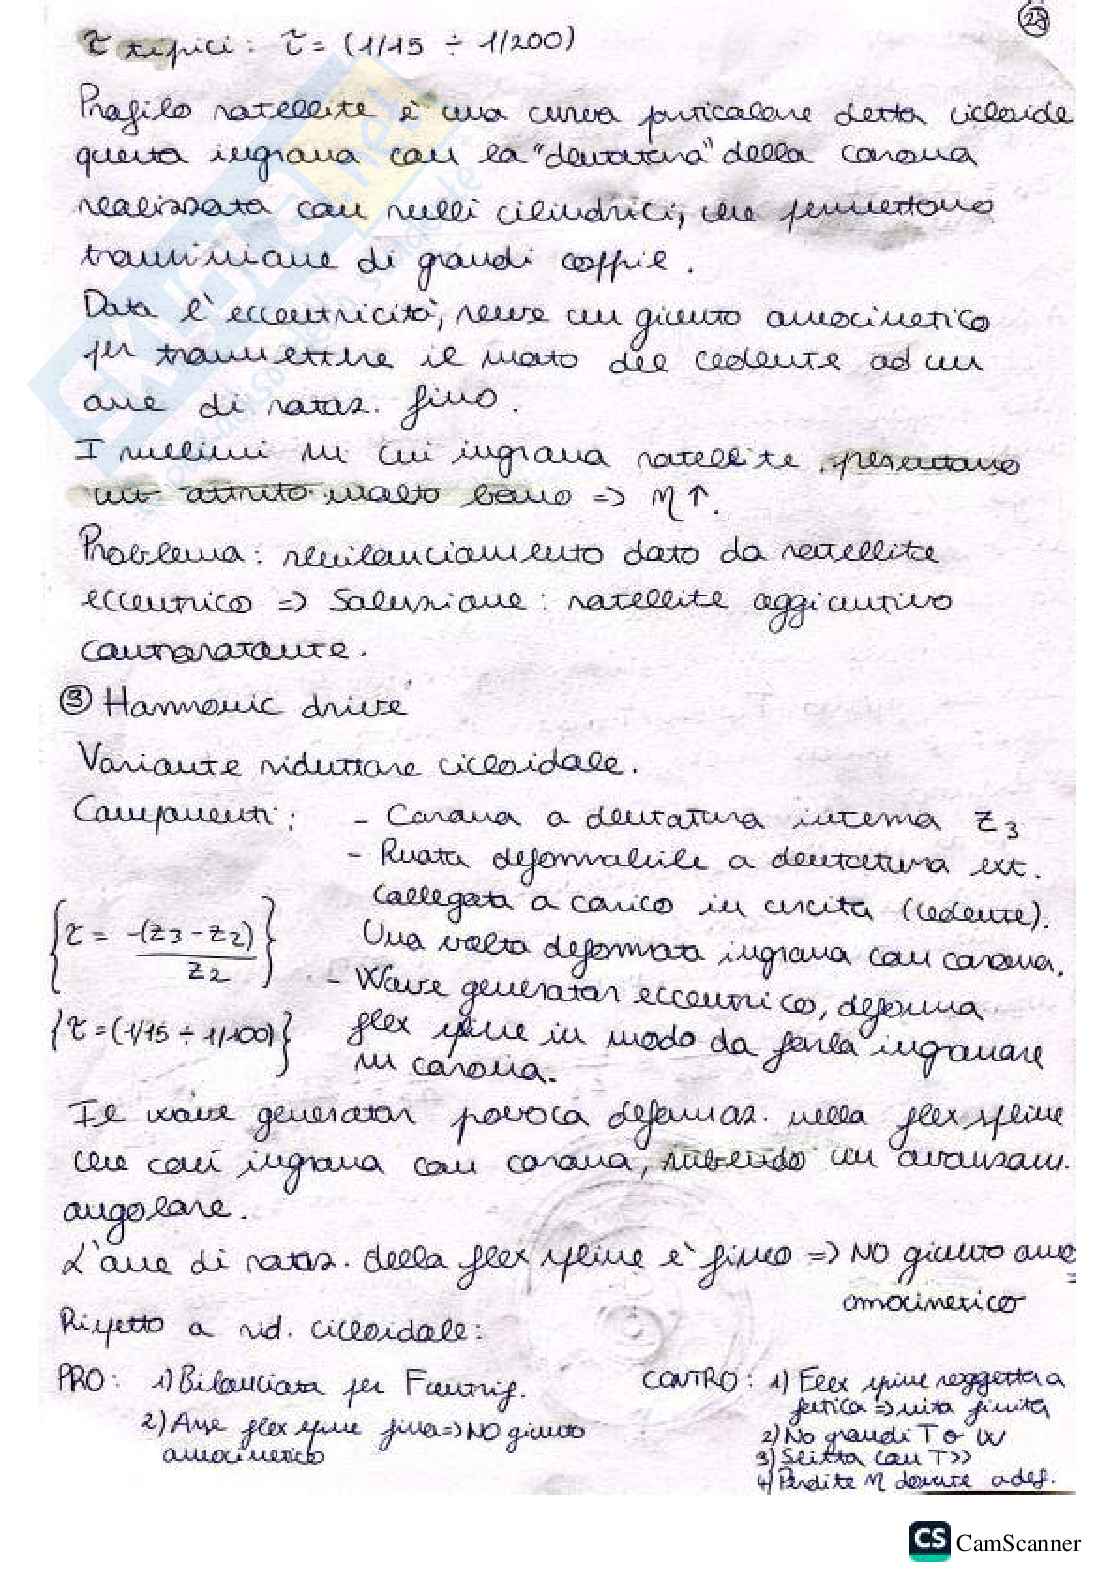 28
τ tipici: τ = (1/15 ÷ 1/200)
Profilo satellite è una curva particolare detta cicloide
questa ingrana con la "dentatura" della corona
realizzata con rulli cilindrici, che permettono
trasmissione di grandi coppie.
Data l'eccentricità, serve un giunto omocinetico
per trasmettere il moto del cedente ad un
asse di rotaz. fisso.
I rullini su cui ingrana satellite presentano
un attrito molto basso => η↑.
Problema: sbilanciamento dato da satellite
eccentrico => Soluzione: satellite aggiuntivo
controrotante.
③ Harmonic drive
Variante riduttore cicloidale.
Componenti: - Corona a dentatura interna z3
- Ruota deformabile a dentatura ext.
Collegata a carico in uscita (cedente).
Una volta deformata ingrana con corona.
{τ = -(z3 - z2) / z2}
- Wave generator eccentrico, deforma
flex spline in modo da farla ingranare
su corona.
{τ = (1/15 ÷ 1/100)}
Il wave generator povoca deformaz. nella flex spline
che così ingrana con corona, subendo un avanzam.
angolare.
L'asse di rotaz. della flex spline è fisso => NO giunto omo
omocinetico
Rispetto a rid. cicloidale:
PRO: 1) Bilanciata per Fcentrif.
2) Asse flex spline fisso => NO giunto
omocinetico
CONTRO: 1) Flex spline soggetta a
fatica => vita finita
2) No grandi T o ω
3) Slitta con T>>
4) Perdite η dovute a def.
CS CamScanner